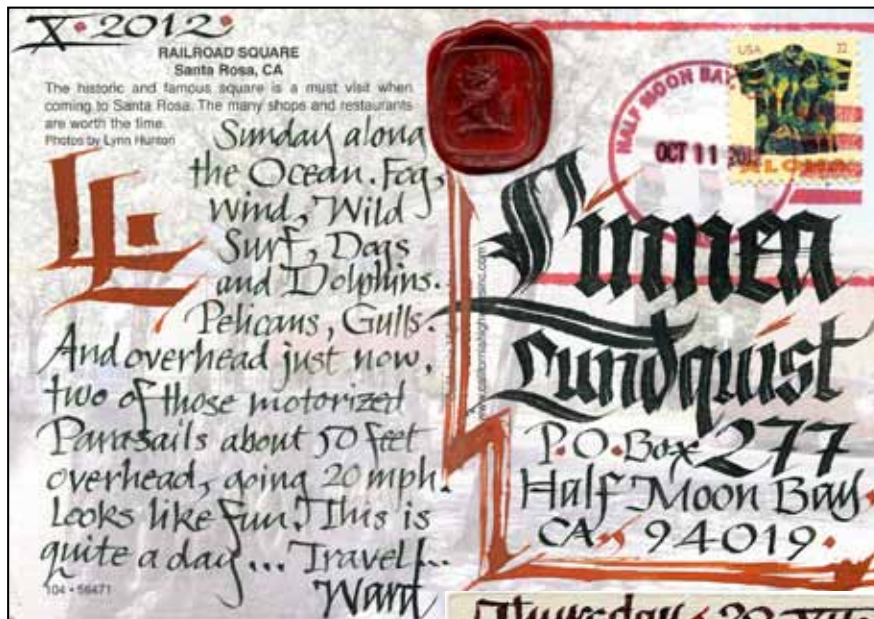 X • 2012 •
RAILROAD SQUARE
Santa Rosa, CA
The historic and famous square is a must visit when
coming to Santa Rosa. The many shops and restaurants
are worth the time.
Photos by Lynn Hunton
LL
Sunday along
the Ocean. Fog,
Wind, Wild
Surf, Dogs
and Dolphins.
Pelicans, Gulls.
And overhead just now,
two of those motorized
Parasails about 50 feet
overhead, going 20 mph.
Looks like fun! This is
quite a day... Travel!..
Ward
104 • 56471
USA
ALOHA
HALF MOON BAY, 
OCT 11 2012
Linnen
Lundquist
P.O. Box 277
Half Moon Bay
CA 94019
Thursday 20 XII